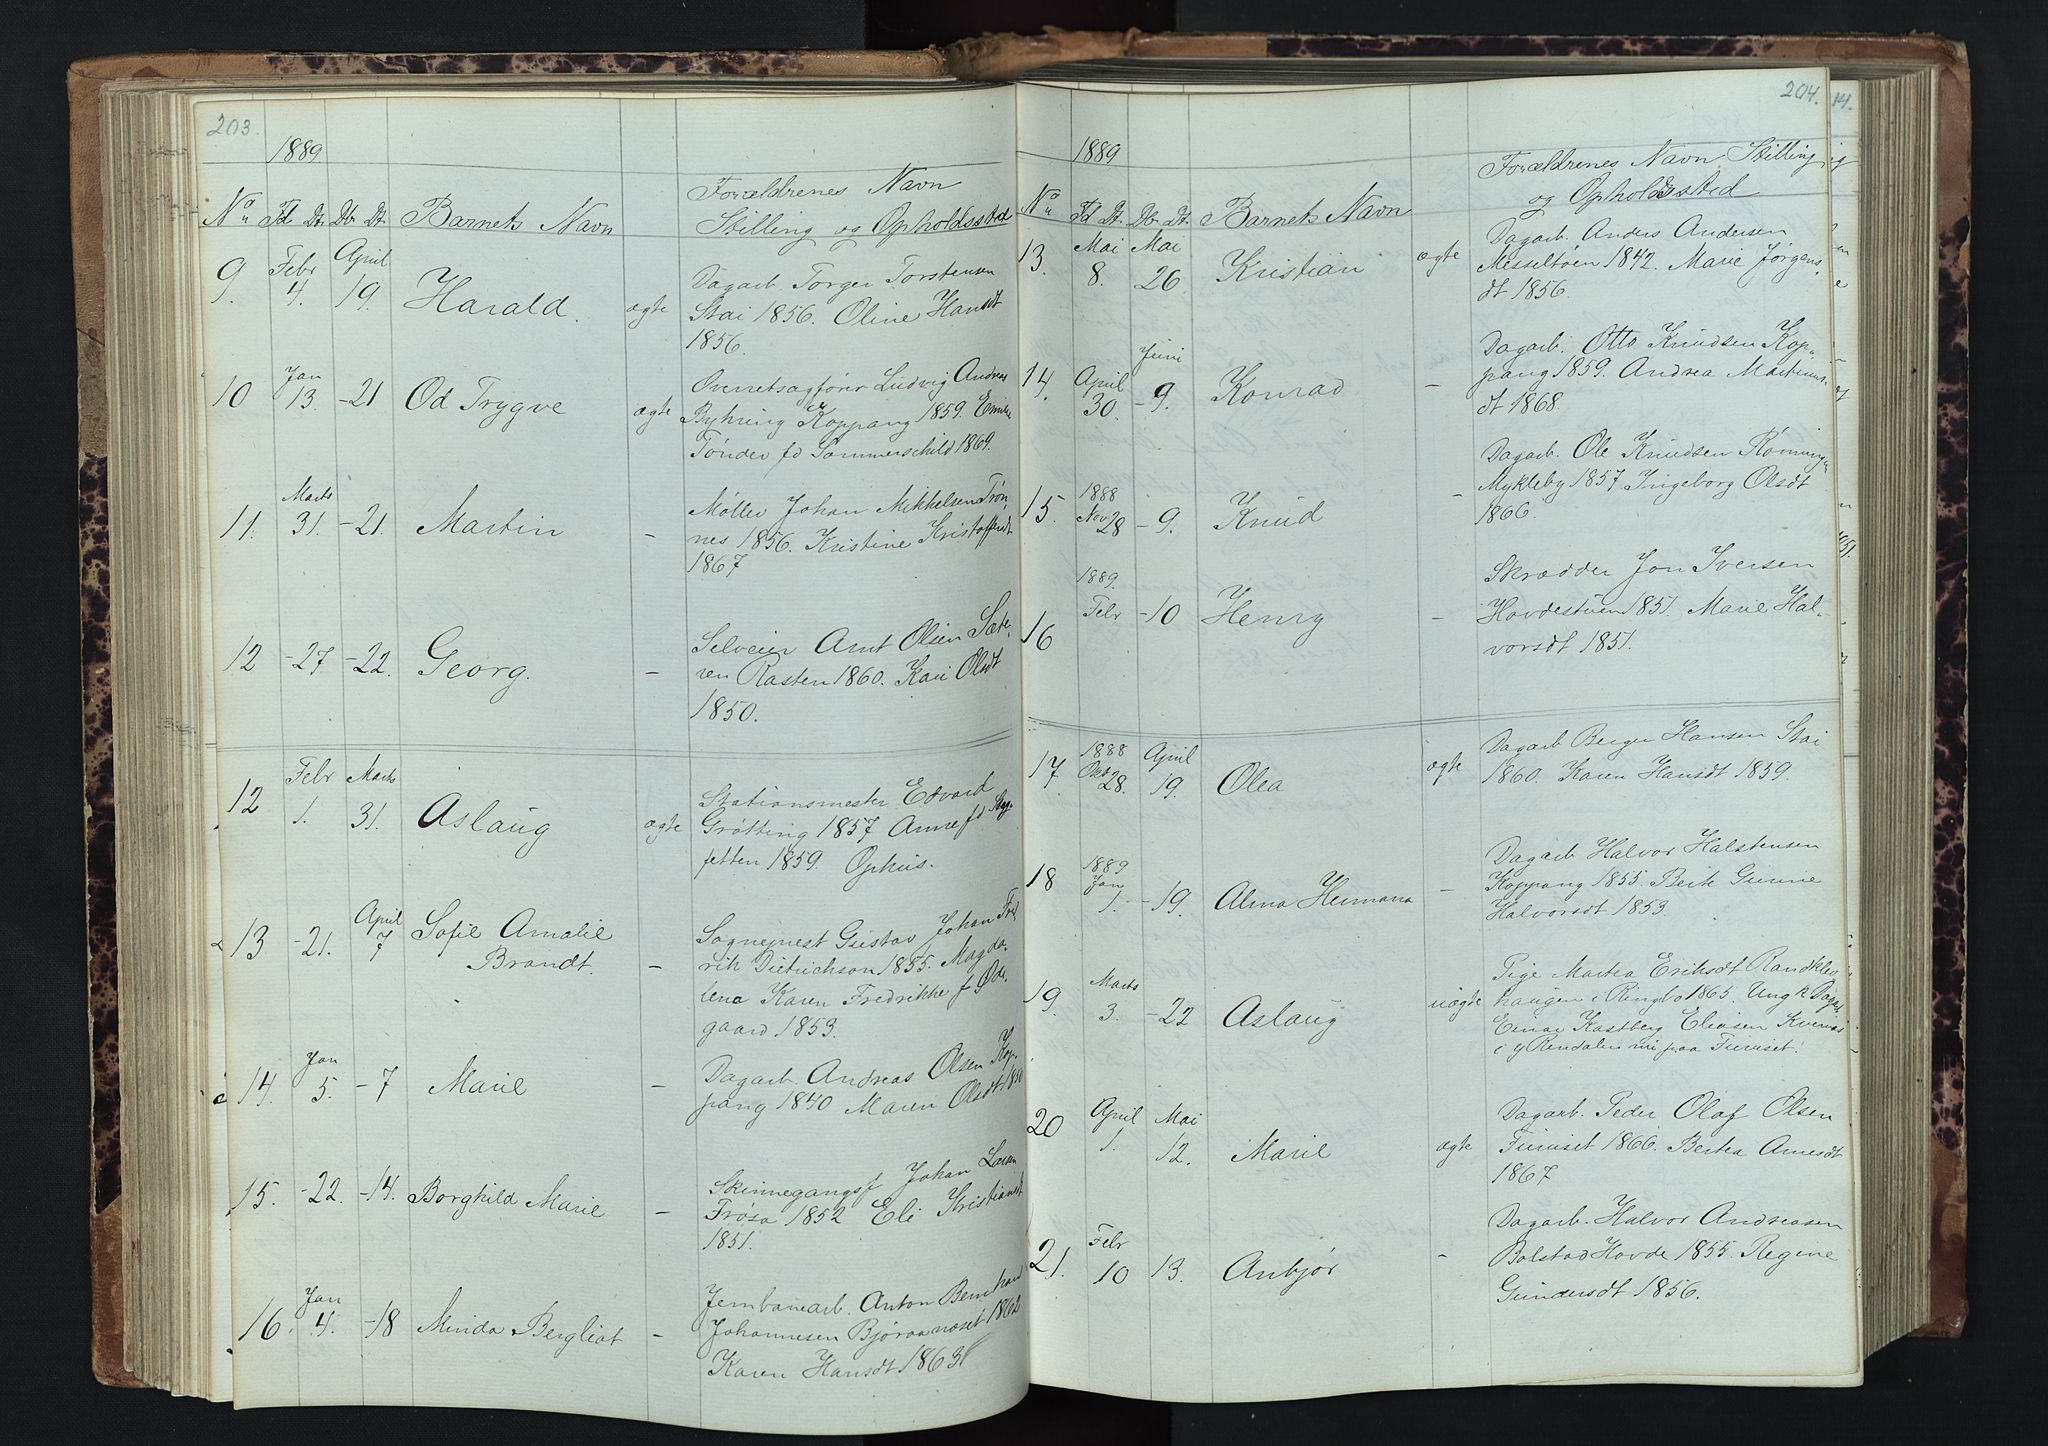 203.
1889
No Fd Dt. Db. Dt. Barnets Navn Forældrenes Navn
Stilling og Opholdssted
9. Febr 4. April 19. Harald. ægte Dagarb. Torger Torstensen
Stai 1856. Oline Hansdt
1856.
10 Jan 13. -21 Od Trygve ægte Overretsagfører Ludvig Andreas
Byhring Koppang 1859. Emilie
Tønder fd Sommerschild 1869.
11. Marts 31. -21. Martin - Møller Johan Mikkelsen Trøn
nes 1856. Kristine Kristoffersdt
1867
12 -27 -22. Georg. - Selveier Arnt Olsen Sæte
ren Rasten 1860. Kari Olsdt
1850.
12 Febr 1. Marts 31. Aslaug ægte Stationsmester Edvard
Grøtting 1857 Anne fd
1859. Ophus.
13 -21. April 7 Sofie Amalie
Brandt. - Sognepræst Gustav Johan Fred
rik Dietrichson 1855. Magda
lena Karen Fredrikke f Øde
gaard 1853.
14. Jan 5. -7 Marie - Dagarb. Andreas Olsen Kop
pang 1840 Maren Olsdt 1850
15. -22. -14. Borghild Marie - Skinnegangsf Johan Larsen
Frøsa 1852 Eli Kristiansdt
1851.
16 Jan 4. -18 Minda Bergliot - Jernbanearb. Anton Bernhard
Johannesen Bjøraanæset 1862
Karen Hansdt 1863
204.
14.
1889
No Fd Dt. Db. Dt. Barnets Navn Forældrenes Navn Stilling
og Opholdssted
13. Mai 8. Mai 26 Kristian ægte Dagarb. Anders Andersen
Messeltøen 1842. Marie Jørgens
dt 1856.
14. April 30. Juni -9. Konrad - Dagarb. Otto Knudsen Kop
pang 1859. Andrea Martinus
dt 1868.
15. 1888 Nov 28 -9. Knud - Dagarb. Ole Knudsen Rønningen
Mykleby 1857 Ingeborg Olsdt
1866
16 1889. Febr -10 Henry - Skrædder Jon Iversen
Hovdestuen 1851. Marie Hal-
vorsdt 1851.
17. 1888 Okt 28. April 19. Olea ægte Dagarb Berger Hansen Stai
1860. Karen Hansdt 1859.
18 1889 Jan 1. -19. Alma Hermana - Dagarb Halvor Halstensen
Koppang 1855. Berit Gunne
Halvorsdt 1853.
19. Marts 3. -22 Aslaug uægte Pige Martea Eriksdt Randklev
haugen i Ringbo 1865. Ungk Dagarb
Einar Kastberg Eliasen Kvernæs
i y Rendalen nu paa Furuset.
20 April 1. Mai 12. Marie ægte Dagarb. Peder Olaf Olsen
Furuset 1866. Bertea Arnesdt
1867
21. Febr 10 13. Anbjør - Dagarb. Halvor Andreasen
Bolstad Hovde 1855. Regine
Gundersdt 1856.